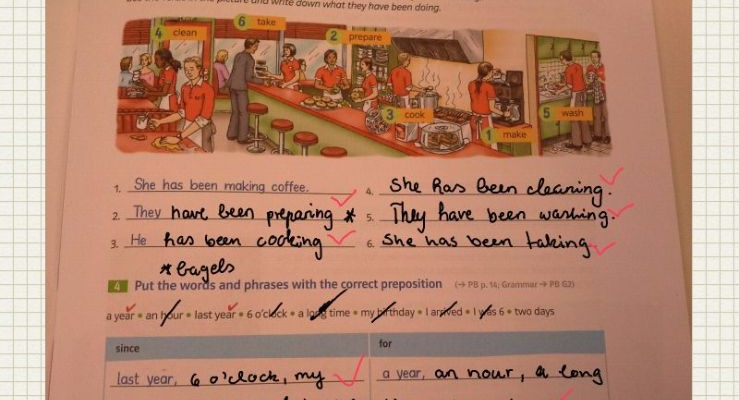 and write down what they have been doing.
6 take
4 clean
2 prepare
3 cook
5 wash
1 make
1. She has been making coffee.
4. She has been cleaning.
2. They have been preparing *
5. They have been washing.
3. He has been cooking
6. She has been taking
* bagels
4 Put the words and phrases with the correct preposition (→ PB p. 14; Grammar → PB G2)
a year • an hour • last year • 6 o'clock • a long time • my birthday • I arrived • I was 6 • two days
since
for
last year, 6 o'clock, my
a year, an hour, a long